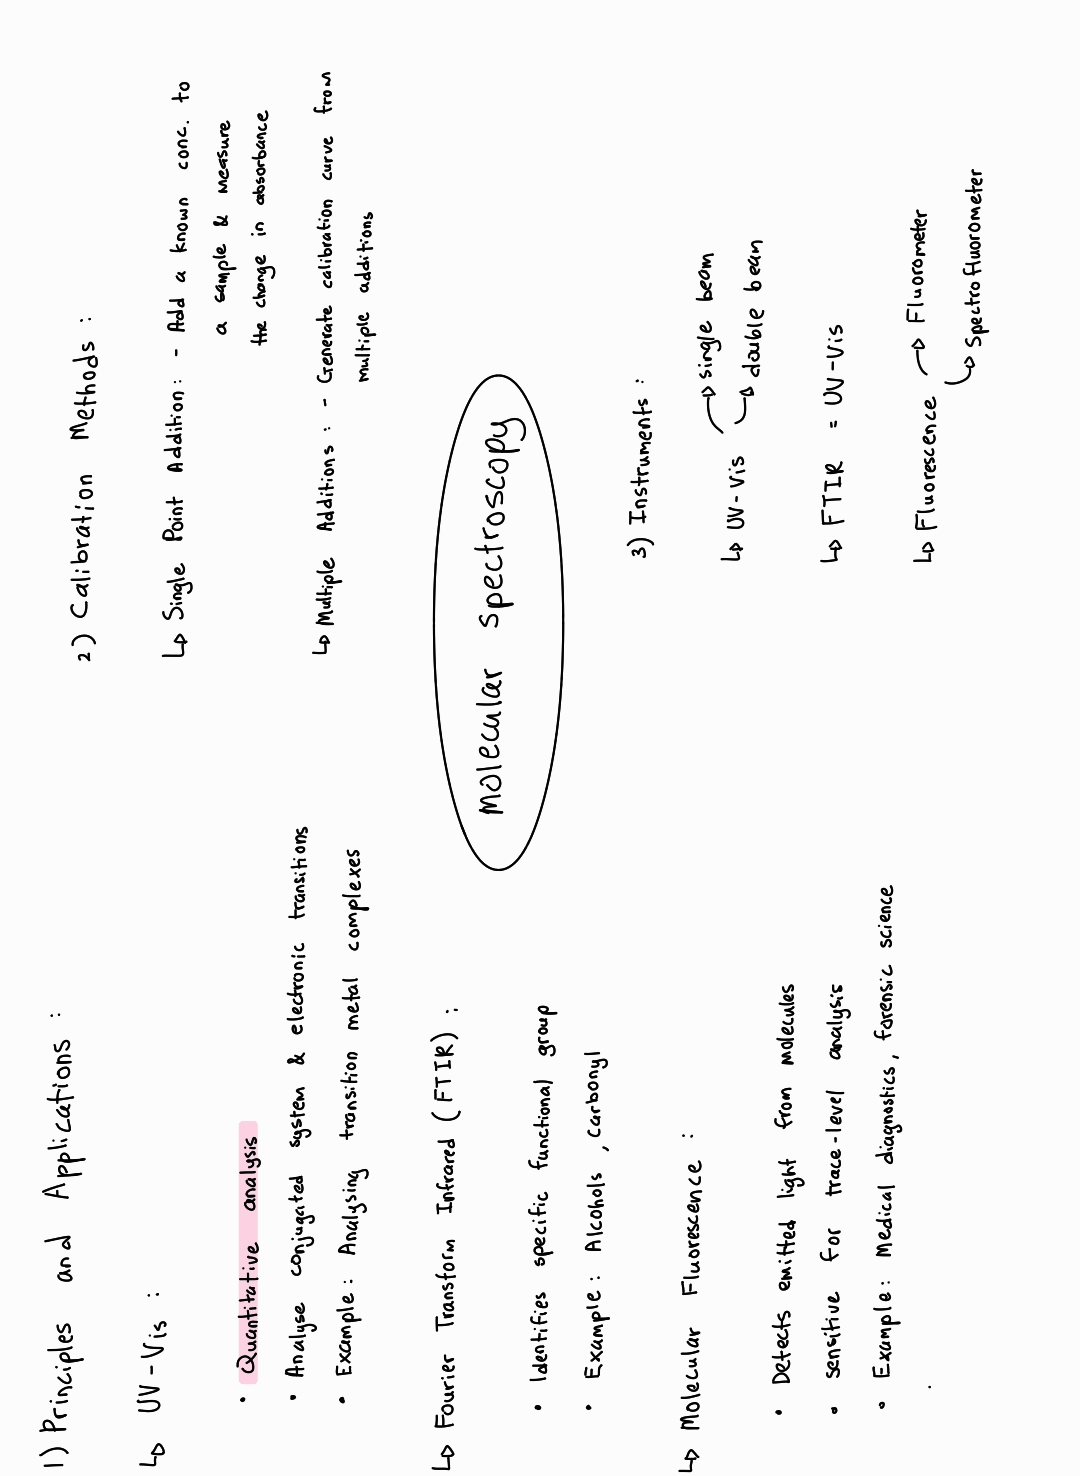 1) Principles and Applications :
↳ UV-Vis :
• Quantitative analysis
• Analyse conjugated system & electronic transitions
• Example : Analysing transition metal complexes
↳ Fourier Transform Infrared (FTIR) :
• Identifies specific functional group
• Example : Alcohols , carbonyl
↳ Molecular Fluorescence :
• Detects emitted light from molecules
• sensitive for trace-level analysis
• Example : Medical diagnostics, forensic science
2) Calibration Methods :
↳ Single Point Addition : - Add a known conc. to
a sample & measure
the change in absorbance
↳ Multiple Additions : - Generate calibration curve from
multiple additions
molecular spectroscopy
3) Instruments :
↳ UV-Vis → single beam
→ double beam
↳ FTIR = UV-Vis
↳ Fluorescence → Fluorometer
→ Spectrofluorometer